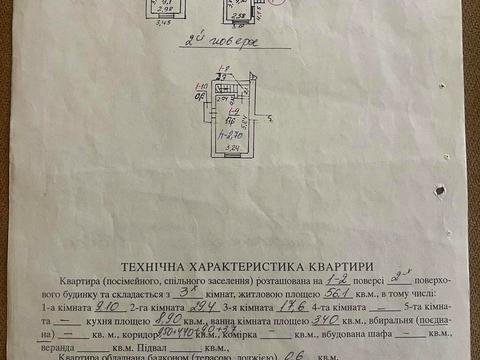 2,98
3,45
2,58
2й поверх
1-8
1-10
1-9
5,24
h-2,70
3,24
ТЕХНІЧНА ХАРАКТЕРИСТИКА КВАРТИРИ
Квартира (посімейного, спільного заселення) розташована на 1-2 поверсі 2-х поверхо-
вого будинку та складається з 3х кімнат, житловою площею 56,1 кв.м., в тому числі:
1-а кімната 9,10 2-га кімната 29,4 3-тя кімната 17,6 4-та кімната — 5-та кімна-
та — кухня площею 8,90 кв.м., ванна кімната 3,40 кв.м., вбиральня (поєдна-
на) — кв.м., коридор кв.м., комірка — кв.м., вбудована шафа кв.м.,
веранда кв.м. Підвал кв.м.
Квартира обладнана балконом (терасою, лоджією) 0,6 кв.м.